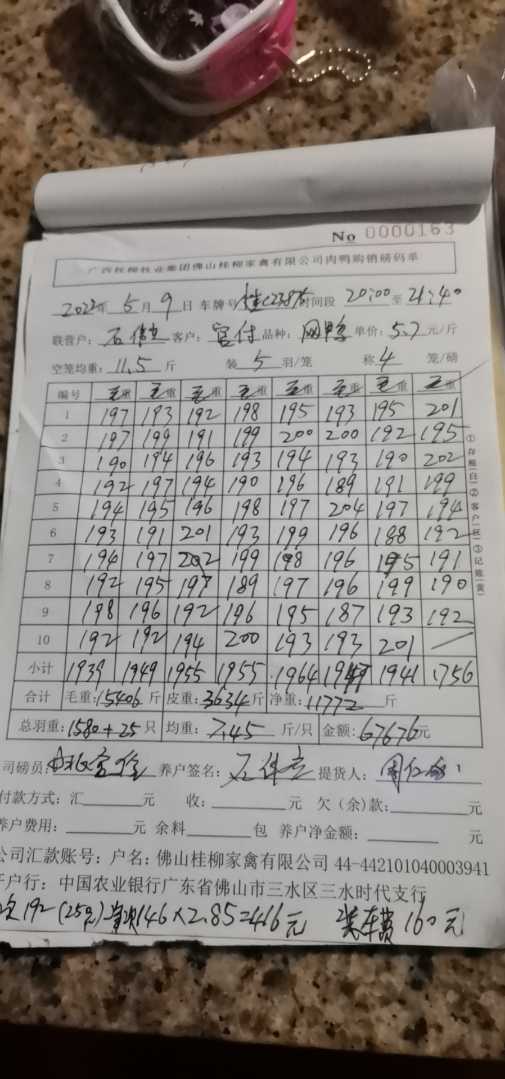 No 0000163
广西桂柳牧业集团佛山桂柳家禽有限公司肉鸭购销磅码单
2022年 5月 9日 车牌号 时间段 20:00 至 21:40
联营户: 石 客户: 官付 品种: 网鸭 单价: 5.7 元/斤
空笼均重: 11.5 斤 装 5 羽/笼 称 4 笼/磅
编号 毛重 毛重 毛重 毛重 毛重 毛重 毛重 毛重
1 197 193 192 198 195 193 195 201
2 197 199 191 199 200 200 192 195
3 190 194 196 193 194 193 190 202
4 192 197 194 190 196 189 191 199
5 194 195 196 198 197 204 197 194
6 193 191 201 193 199 196 188 192
7 194 197 202 199 198 196 195 191
8 192 195 197 189 197 196 199 190
9 198 196 192 196 195 187 193 192
10 192 192 194 200 193 193 201 —
小计 1939 1949 1955 1955 1964 1947 1941 1756
合计 毛重: 15406 斤 皮重: 3634 斤 净重: 11772 斤
总羽重: 1580+25 只 均重: 7.45 斤/只 金额: 67676元
司磅员: 养户签名: 石 提货人: 周
付款方式: 汇 元 收: 元 欠(余)款: 元
养户费用: 元 余料 包 养户净金额: 元
公司汇款账号: 户名: 佛山桂柳家禽有限公司 44-442101040003941
开户行: 中国农业银行广东省佛山市三水区三水时代支行
次192(25只) 146×2.85=416元 装车费160元
①存根(白)②客户(红)③记账(黄)